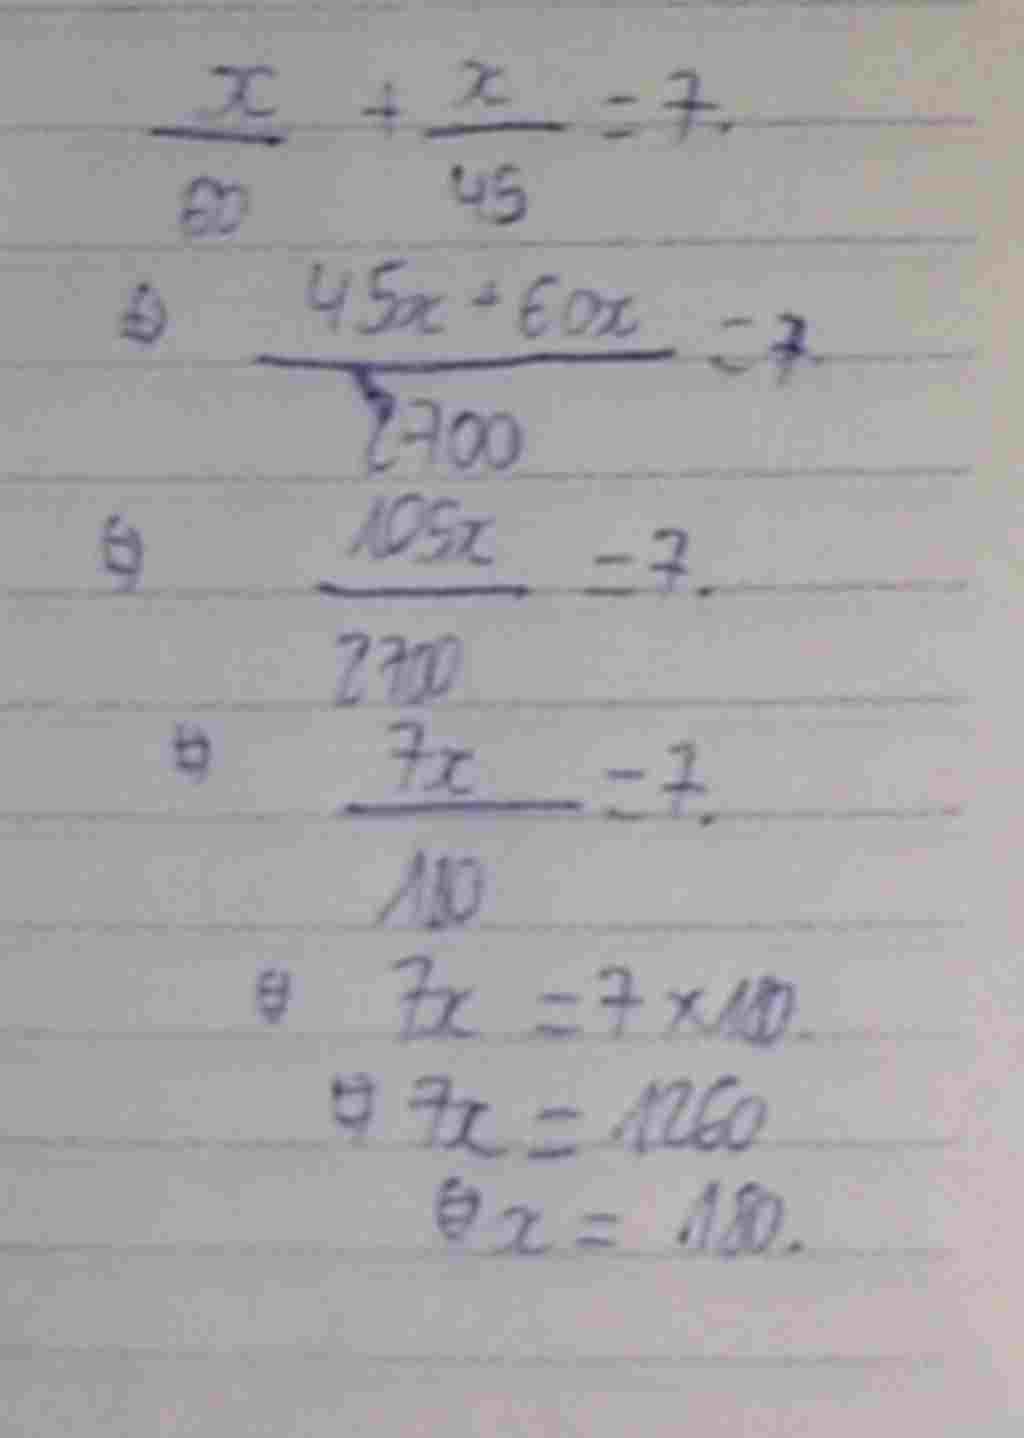 x/60 + x/45 = 7.
⇔ (45x + 60x)/2700 = 7
⇔ 105x/2700 = 7.
⇔ 7x/180 = 7.
⇔ 7x = 7 × 180.
⇔ 7x = 1260
⇔ x = 180.